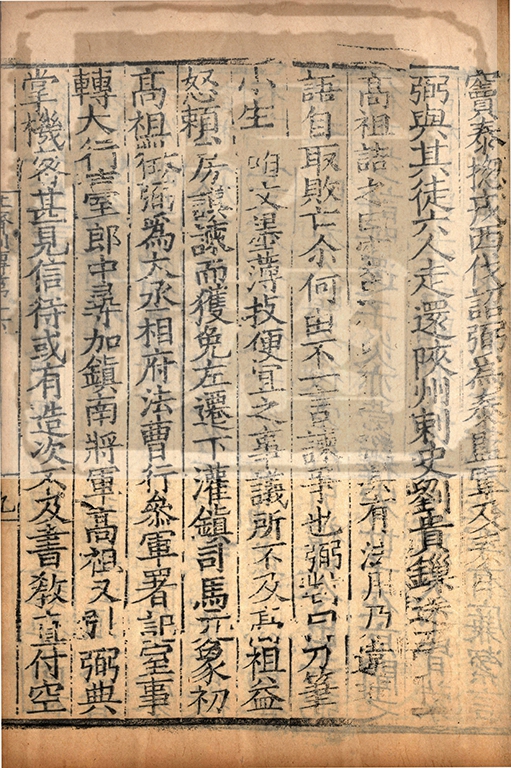 竇泰揔戎西伐詔弼為泰監軍及泰
弼與其徒六人走還陝州刺史劉貴鏁送
高祖詰之曰有法用乃違
語自取敗亡尒何由不一言諫爭也弼對曰刀筆
小生唯文墨薄技便宜之事議所不及高祖益
怒賴房謨諫而獲免左遷下灌鎮司馬元象初
高祖徵弼為大丞相府法曹行叅軍署記室事
轉大行臺郎中尋加鎮南將軍高祖又引弼典
掌機密甚見信待或有造次不及書教直付空
九